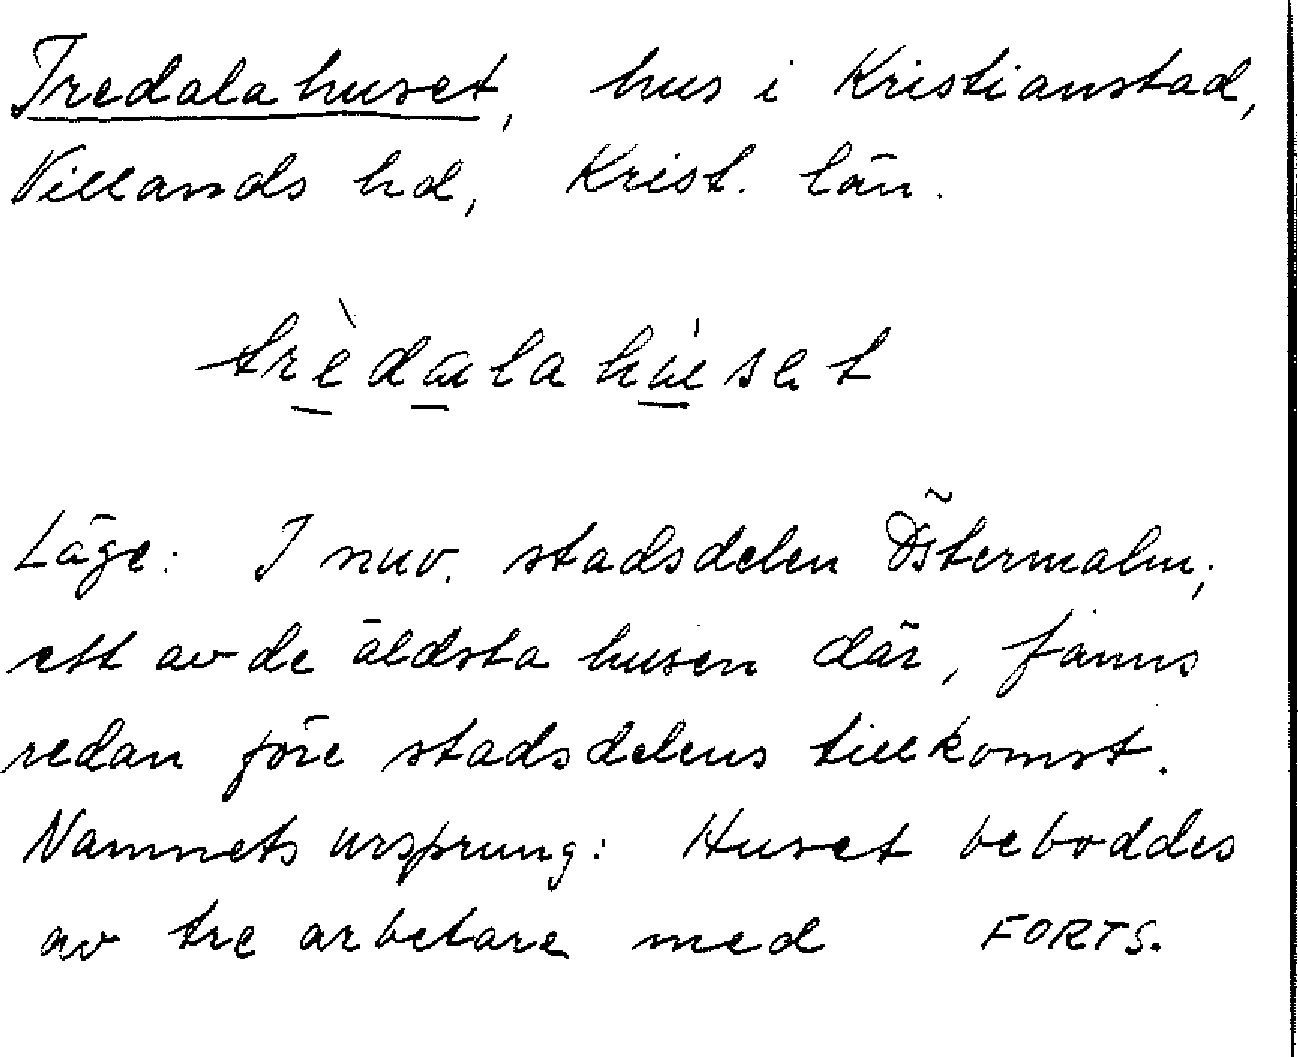 Tredalahuset, hus i Kristianstad,
Villands hd, Krist. län.
trèdalahúset
Läge: I nuv. stadsdelen Östermalm;
ett av de äldsta husen där, fanns
redan före stadsdelens tillkomst.
Namnets ursprung: Huset beboddes
av tre arbetare med FORTS.